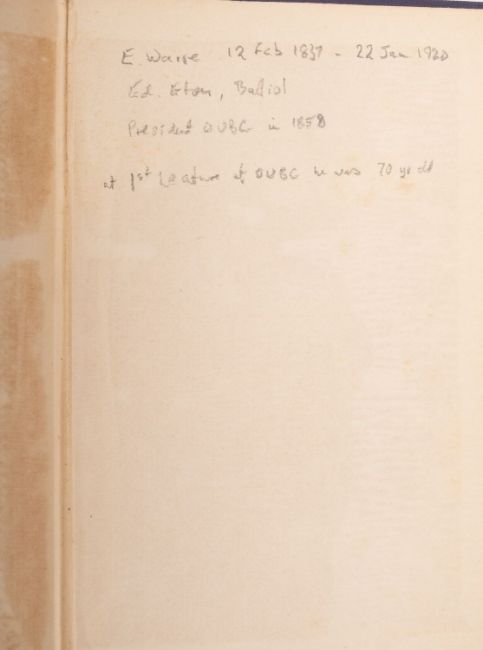 E. Warre 12 Feb 1837 - 22 Jan 1920
Ed. Eton, Balliol
President OUBC in 1858
at 1st Lecture at OUBC he was 70 yr old